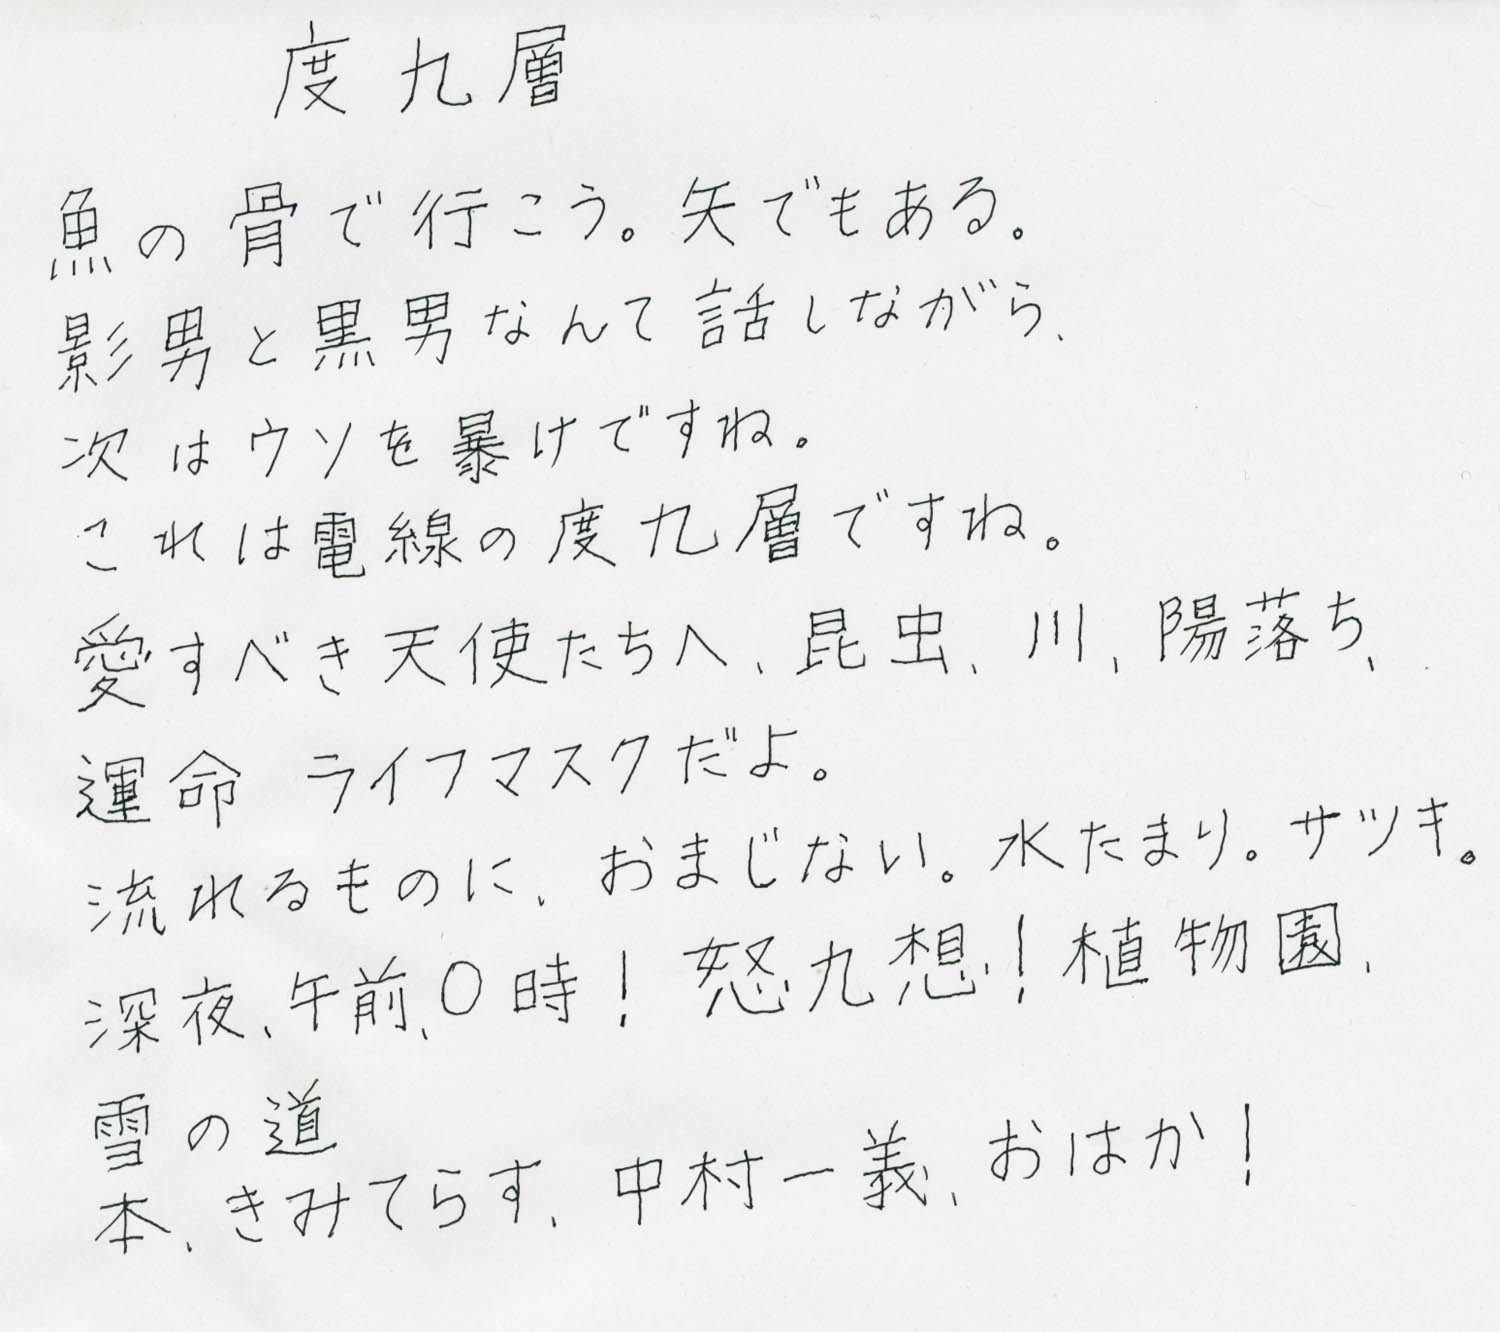 度九層
魚の骨で行こう。矢でもある。
影男と黒男なんて話しながら、
次はウソを暴けですね。
これは電線の度九層ですね。
愛すべき天使たちへ、昆虫、川、陽落ち、
運命 ライフマスクだよ。
流れるものに、おまじない。水たまり。サツキ。
深夜、午前、0時！怒九想！植物園、
雪の道
本、きみてらす、中村一義、おはか！